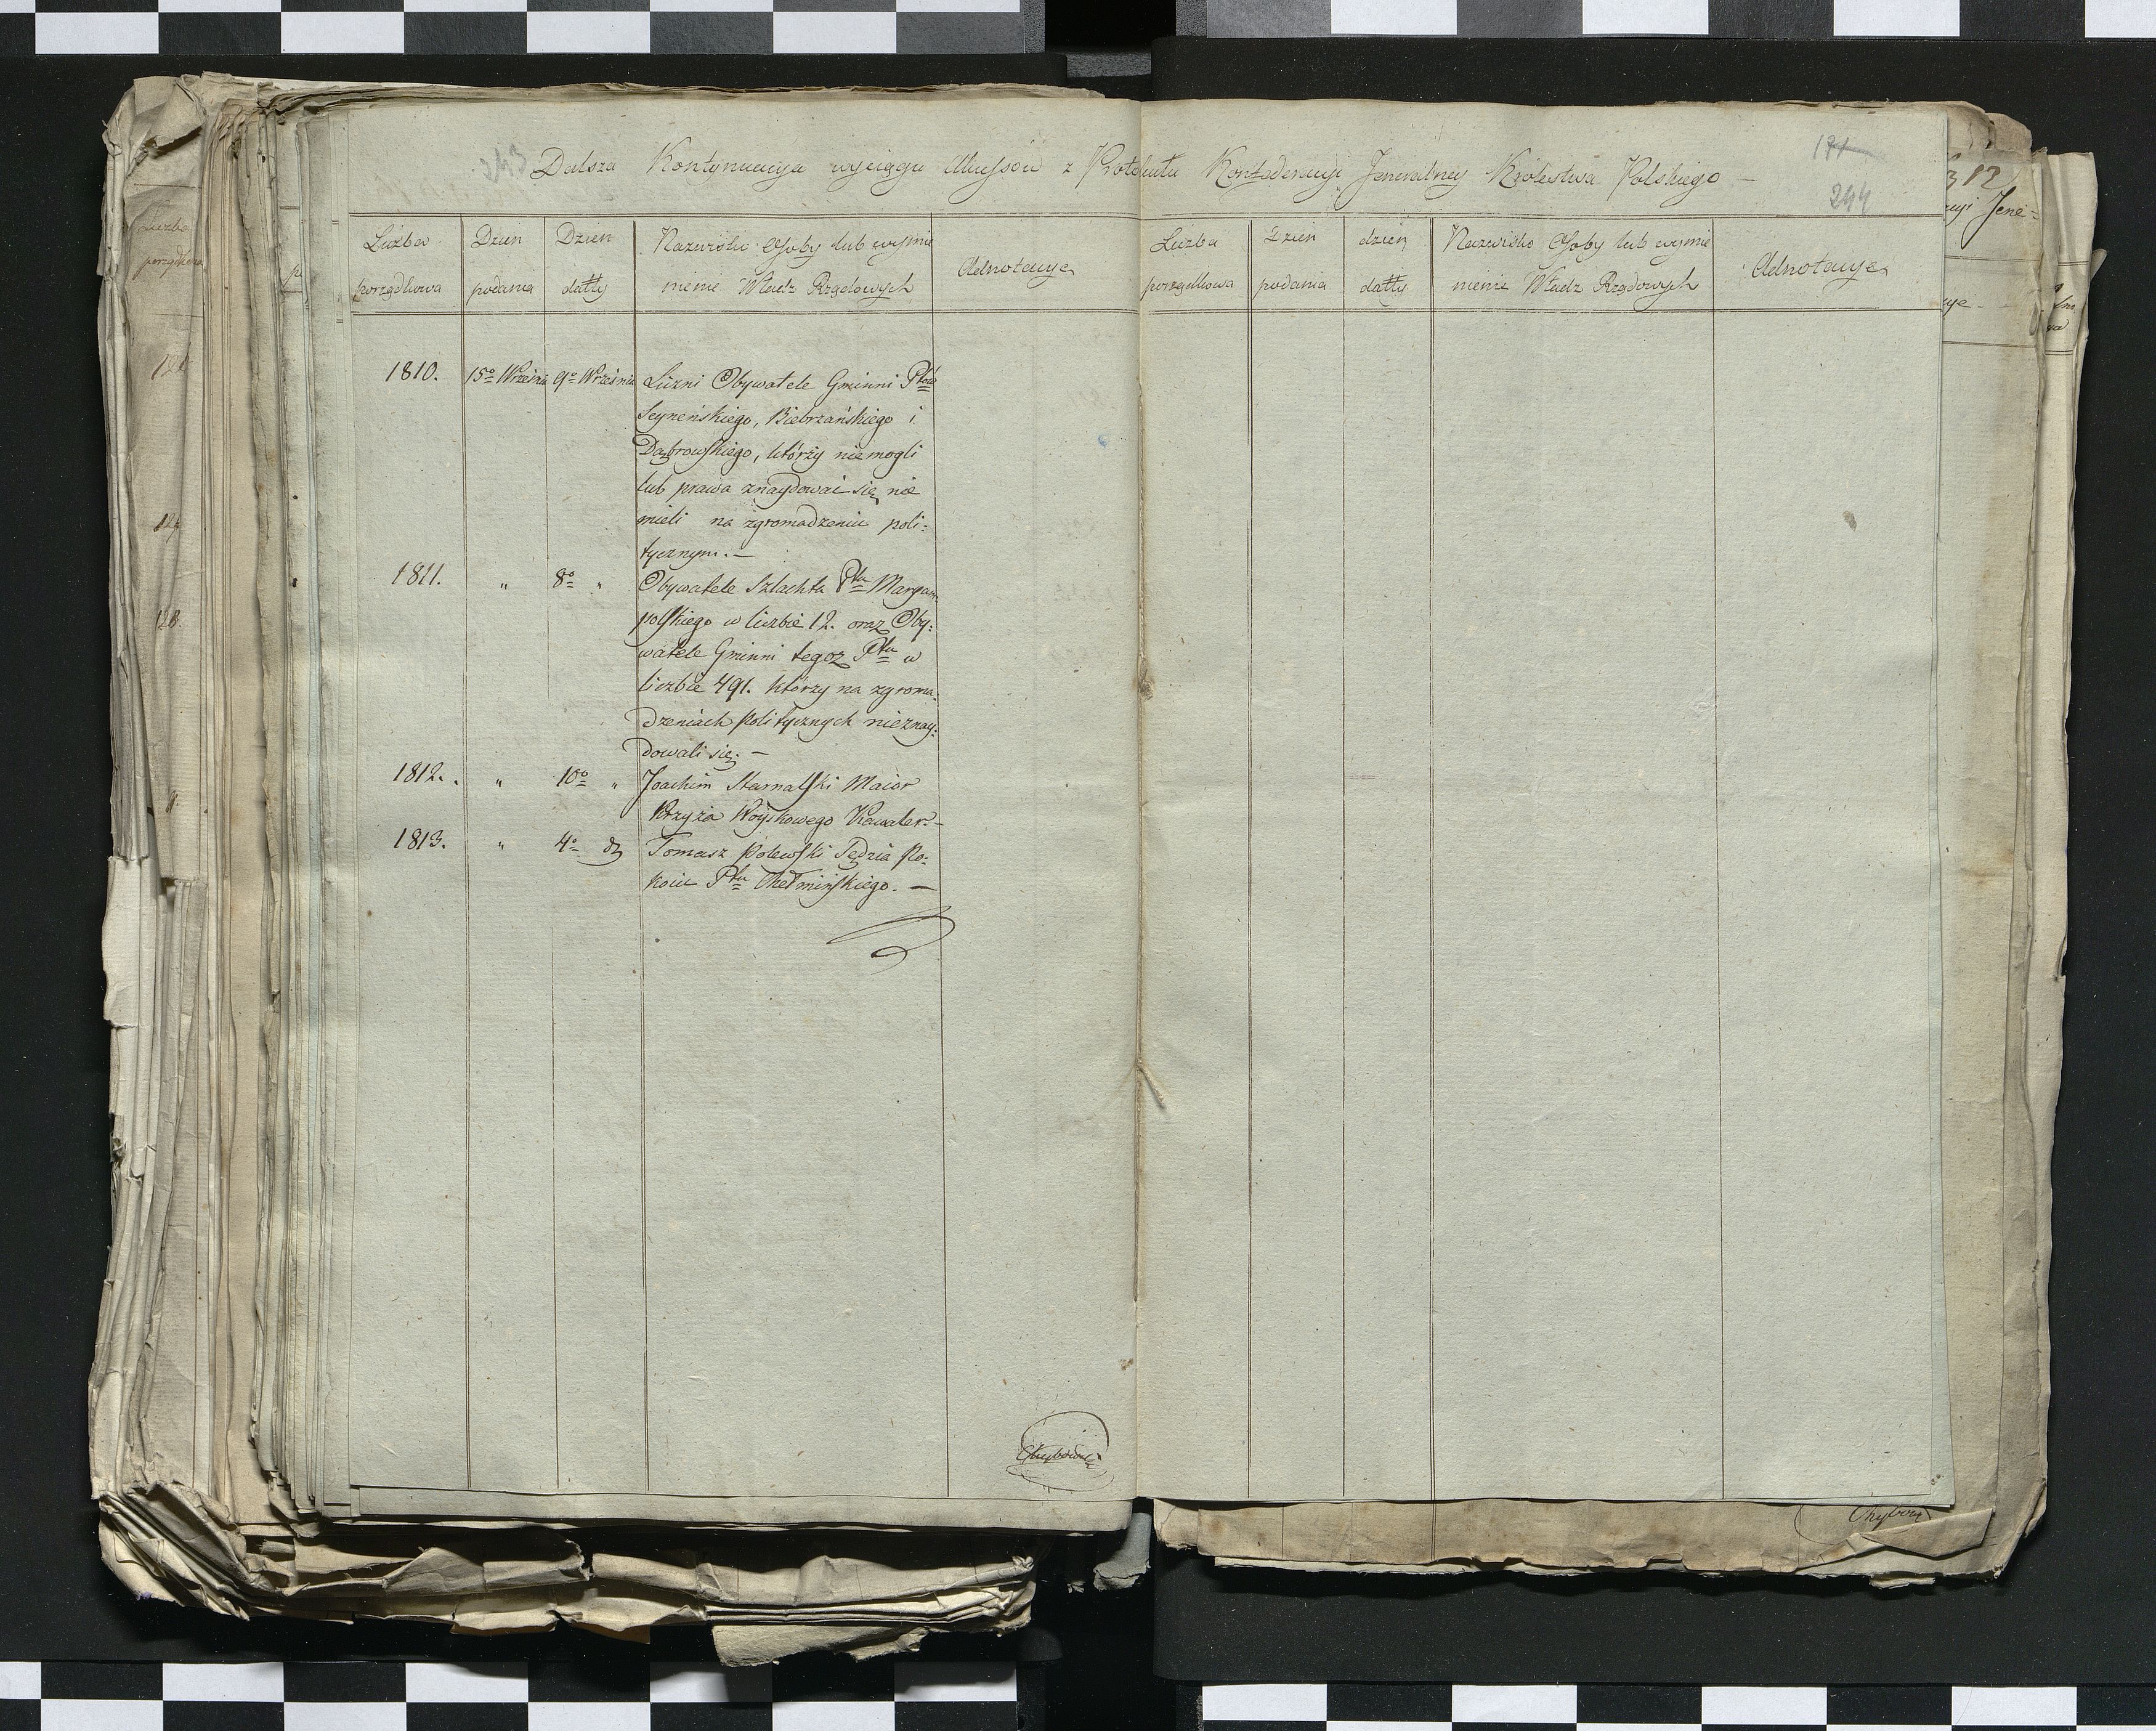 243
Dalsza Kontynuacya wyciągu Akcessów z Protokułu Konfederacyi Jeneralney Królestwa Polskiego —
171
244
Liczba porządkowa
Dzień podania
Dzień datty
Nazwisko Osoby lub wymie
nienie Władz Rządowych
Adnotacye
Liczba porządkowa
Dzień podania
dzień datty
Nazwisko Osoby lub wymie
nienie Władz Rządowych
Adnotacye
1810. 15º Września 9º Września Liczni Obywatele Gminni Ptów
Seyneńskiego, Biebrzańskiego i
Dąbrowskiego, którzy nie mogli
lub prawa znaydować się nie
mieli na zgromadzeniu poli:
tycznym. —
1811. " 8º " Obywatele Szlachta Ptu Maryam
polskiego w liczbie 12. oraz Oby:
watele Gminni tegoż Ptu w
liczbie 491. którzy na zgroma:
dzeniach politycznych nieznay:
dowali się. —
1812. " 10º " Joachim Maior
Krzyża Woyskowego Kawaler. —
1813. " 4º Tomasz Polewski Sędzia Po:
koiu Ptu Chełmińskiego. —
312
Jene=